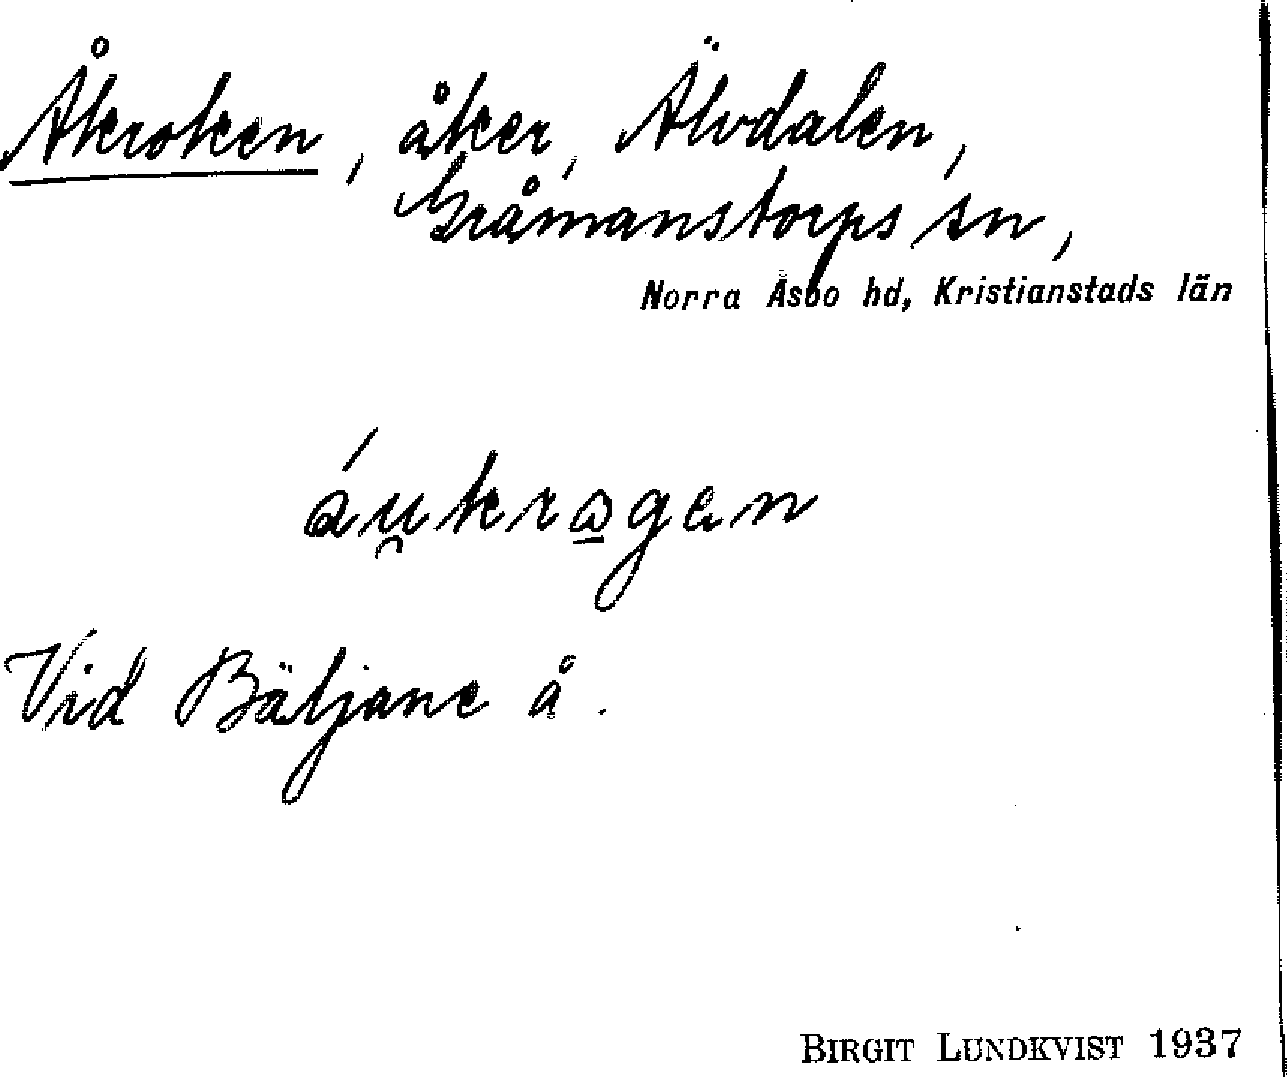 Åkroken, åker, Älvdalen,
Gråmanstorps sn,
Norra Åsbo hd, Kristianstads län
áu̯krogen
Vid Bäljane å.
BIRGIT LUNDKVIST 1937